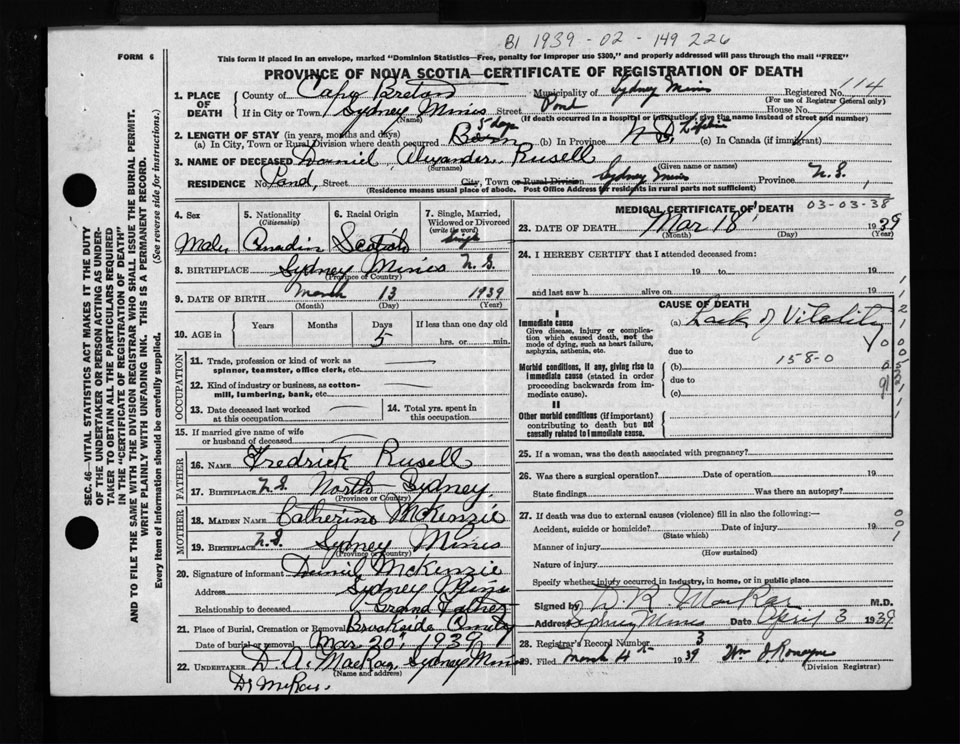 B1 1939 - 02 - 149226
FORM 6
This form if placed in an envelope, marked "Dominion Statistics—Free, penalty for improper use $300," and properly addressed will pass through the mail "FREE"
PROVINCE OF NOVA SCOTIA—CERTIFICATE OF REGISTRATION OF DEATH
1. PLACE OF DEATH
County of Cape Breton Municipality of Sydney Mines Registered No. 114
(For use of Registrar General only)
If in City or Town Sydney Mines Street Pond House No.
(Name) (If death occurred in a hospital or institution, give the name instead of street and number)
2. LENGTH OF STAY (in years, months and days) 5 days
(a) In City, Town or Rural Division where death occurred Born (b) In Province N S. Lifetime (c) In Canada (if immigrant)
3. NAME OF DECEASED Daniel Alexander Rusell
(Surname) (Given name or names)
RESIDENCE No. Pond, Street City, Town or Rural Division Sydney Mines Province N.S.
(Residence means usual place of abode. Post Office Address for residents in rural parts not sufficient)
4. Sex
5. Nationality (Citizenship)
6. Racial Origin
7. Single, Married, Widowed or Divorced (write the word)
Male Canadin Scotch Single
8. BIRTHPLACE Sydney Mines N.S.
(Province or Country)
9. DATE OF BIRTH March 13 1939
(Month) (Day) (Year)
10. AGE in Years Months Days If less than one day old
5 hrs. or min.
OCCUPATION
11. Trade, profession or kind of work as spinner, teamster, office clerk, etc.
12. Kind of industry or business, as cotton-mill, lumbering, bank, etc.
13. Date deceased last worked at this occupation
14. Total yrs. spent in this occupation.
15. If married give name of wife or husband of deceased
FATHER
16. NAME Fredrick Rusell
17. BIRTHPLACE N.S. North Sydney.
(Province or Country)
MOTHER
18. MAIDEN NAME Catherine McKenzie
19. BIRTHPLACE N.S. Sydney Mines
(Province or Country)
20. Signature of informant Daniel McKenzie
Address Sydney Mines
Relationship to deceased Grand Father
21. Place of Burial, Cremation or Removal Brookside Cmty
Date of burial or removal Mar 20th 1939
22. UNDERTAKER D. A. MacKay, Sydney Mines
(Name and address)
Dr McKay.
MEDICAL CERTIFICATE OF DEATH 03-03-38
23. DATE OF DEATH Mar 18 1939
(Month) (Day) (Year)
24. I HEREBY CERTIFY that I attended deceased from:
19 to 19
and last saw h alive on 19
CAUSE OF DEATH
I
Immediate cause
Give disease, injury or complication which caused death, not the mode of dying, such as heart failure, asphyxia, asthenia, etc.
(a) Lack of Vitality
due to
158-0
Morbid conditions, if any, giving rise to immediate cause (stated in order proceeding backwards from immediate cause).
(b)
due to
(c)
II
Other morbid conditions (if important) contributing to death but not causally related to immediate cause.
25. If a woman, was the death associated with pregnancy?
26. Was there a surgical operation? Date of operation 19
State findings Was there an autopsy?
27. If death was due to external causes (violence) fill in also the following:—
Accident, suicide or homicide? Date of injury 19
(State which)
Manner of injury
(How sustained)
Nature of injury
Specify whether injury occurred in industry, in home, or in public place
Signed by D. R. MacKay M.D.
Address Sydney Mines Date April 3 1939
28. Registrar's Record Number 3
29. Filed March 4th 1939 Wm J. Romayne
(Division Registrar)
SEC. 46—VITAL STATISTICS ACT MAKES IT THE DUTY
OF THE UNDERTAKER OR PERSON ACTING AS UNDER-
TAKER TO OBTAIN ALL THE PARTICULARS REQUIRED
IN THE "CERTIFICATE OF REGISTRATION OF DEATH"
AND TO FILE THE SAME WITH THE DIVISION REGISTRAR WHO SHALL ISSUE THE BURIAL PERMIT.
WRITE PLAINLY WITH UNFADING INK. THIS IS A PERMANENT RECORD.
Every item of information should be carefully supplied. (See reverse side for instructions.)